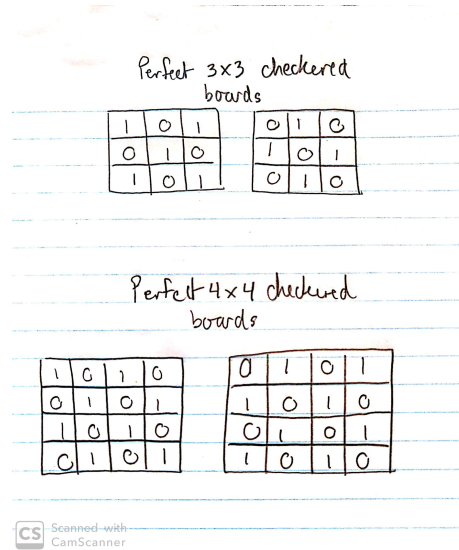 Perfect 3x3 checkered
boards
1 0 1 0 1 0
0 1 0 1 0 1
1 0 1 0 1 0
Perfect 4x4 checkered
boards
1 0 1 0 0 1 0 1
0 1 0 1 1 0 1 0
1 0 1 0 0 1 0 1
0 1 0 1 1 0 1 0
CS Scanned with
CamScanner